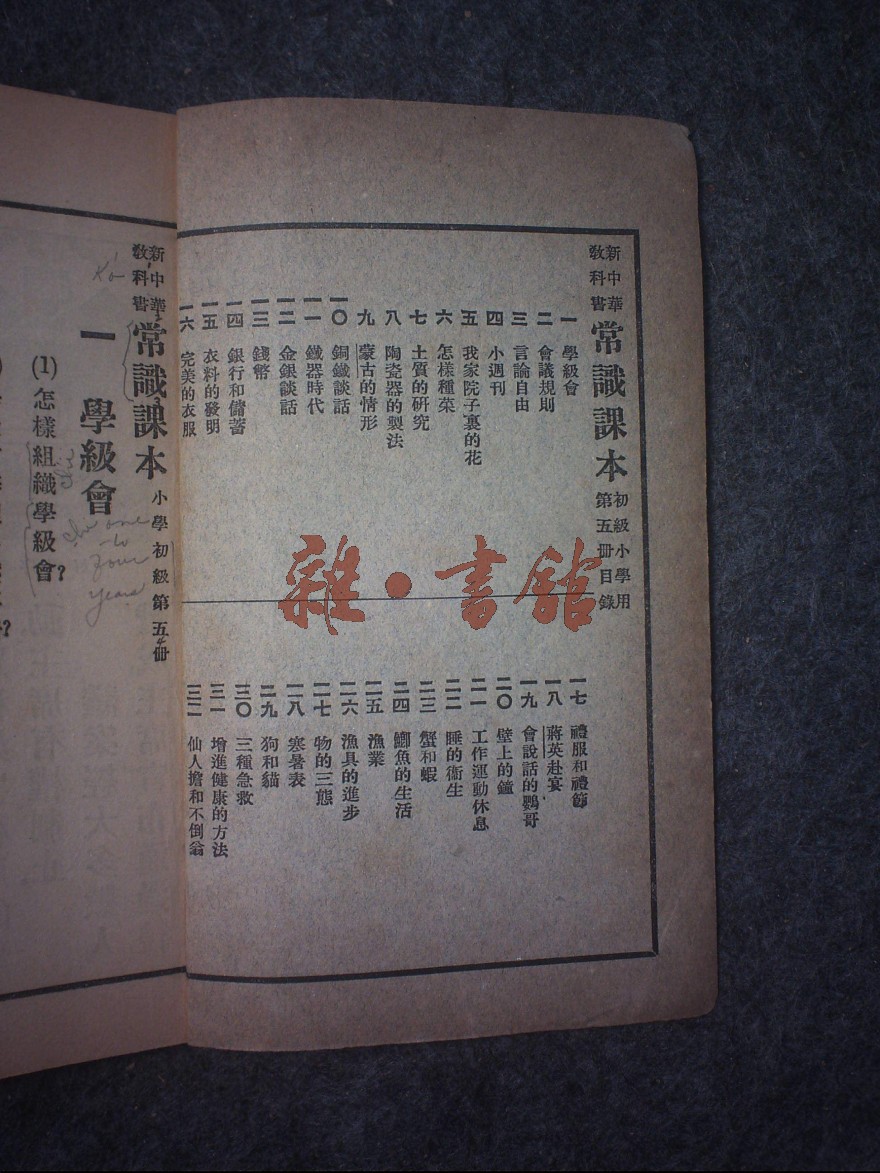 新中華
教科書
常識課本
初級小學用
第五冊目錄
一 學級會
二 會議規則
三 言論自由
四 小週刊
五 我家院子裏的花
六 怎樣種菜
七 土質的研究
八 陶瓷器的製法
九 蒙古的情形
一〇 銅鐵談話
一一 鐵器時代
一二 金銀談話
一三 錢幣
一四 銀行和儲蓄
一五 衣料的發明
一六 完美的衣服
一七 禮服和禮節
一八 蔣英赴宴
一九 會說話的鸚哥
二〇 壁上的鐘
二一 工作運動休息
二二 睡的衞生
二三 蟹和蝦
二四 鯽魚的生活
二五 漁業
二六 漁具的進步
二七 物的三態
二八 寒暑表
二九 狗和貓
三〇 三種急救
三一 增進健康的方法
三二 仙人擔和不倒翁
雜·書館
新中華
教科書
常識課本
小學初級第五冊
one
to
four
years
一 學級會
(1)怎樣組織學級會?